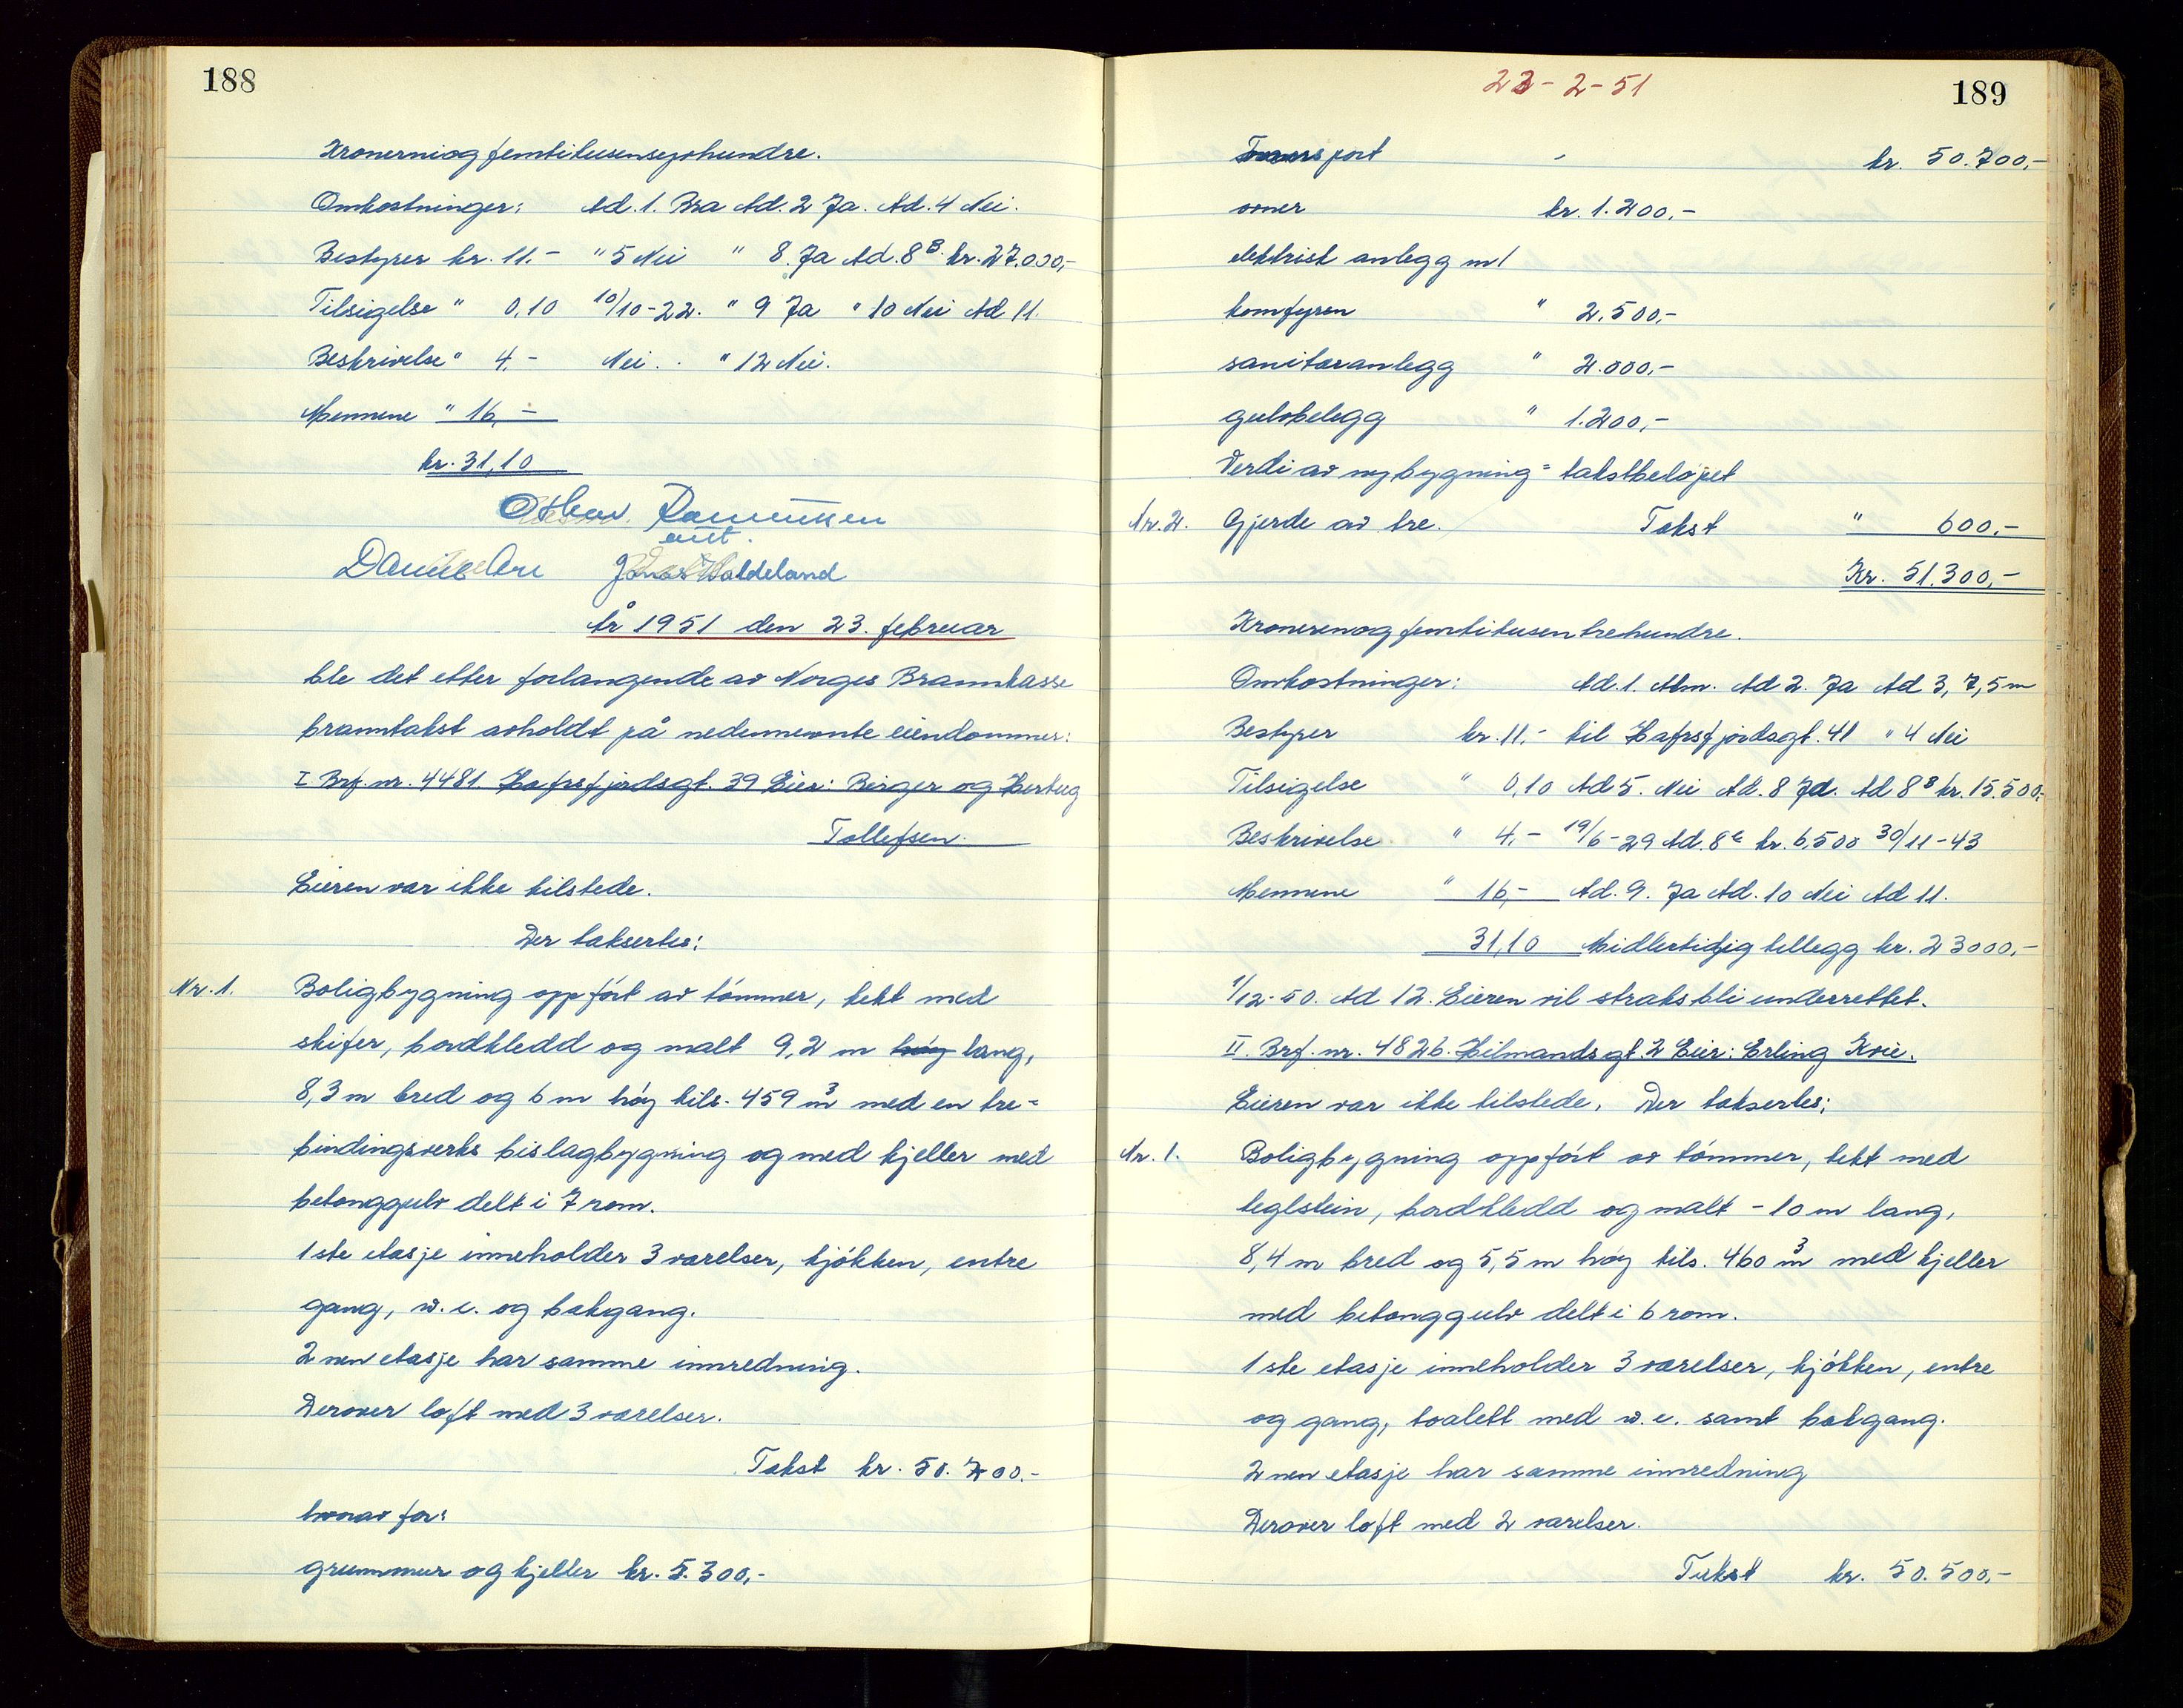 188
Kronerniogfemtitusensyvhundre.
Omkostninger: Ad. 1. Bra Ad. 2 Ja. Ad. 4 Nei.
Bestyrer kr. 11.- " 5 Nei " 8. Ja Ad. 8 B. kr. 27.000,-
Tilsigelse " 0,10 10/10-22. " 9 Ja " 10 Nei Ad 11.
Beskrivelse " 4,- Nei. " 12 Nei.
Mennene " 16,-
kr. 31,10
År 1951 den 23. februar
ble det etter forlangende av Norges Brannkasse
branntakst avholdt på nedennevnte eiendommer:
I Brf. nr. 4481. Hafrsfjordsgt. 39 Eier: Birger og Hertug
Tollefsen.
Eieren var ikke tilstede.
Der taksertes:
Nr. 1. Boligbygning oppført av tømmer, tekt med
skifer, bordkledd og malt 9,2 m høy lang,
8,3 m bred og 6 m høy tils. 459 m3 med en tre=
bindingsverks bislagbygning og med kjeller med
betonggulv delt i 7 rom.
1ste etasje inneholder 3 værelser, kjøkken, entre
gang, w. c. og bakgang.
2nen etasje har samme innredning.
Derover loft med 3 værelser.
Takst kr. 50.700.-
hvorav for:
grunnmur og kjeller kr. 5.300,-
23-2-51
189
Transport kr. 50.700,-
ovner kr. 1.200,-
elektrisk anlegg m/
komfyren " 2.500,-
sanitæranlegg " 2.000,-
gulvbelegg " 1.200,-
Verdi av nybygning = takstbeløpet
Nr. 2. Gjerde av tre. Takst " 600,-
Kr. 51.300,-
Kronerenogfemtitusentrehundre.
Omkostninger: Ad. 1. Alm. Ad 2. Ja Ad 3, 7,5 m
Bestyrer kr. 11,- til Hafrsfjordsgt. 41 " 4 Nei
Tilsigelse " 0,10 Ad 5. Nei Ad. 8 Ja. Ad 8 B kr. 15.500,-
Beskrivelse " 4,- 19/6-29 Ad. 8 c kr. 6.500 30/11-43
Mennene " 16,- Ad. 9. Ja Ad. 10 Nei Ad 11.
31,10 Midlertidig tillegg kr. 23000,-
1/12-50. Ad 12. Eieren vil straks bli underrettet.
II. Brf. nr. 4826. Hilmandsgt. 2 Eier: Erling Kvie.
Eieren var ikke tilstede. Der taksertes:
Nr. 1. Boligbygning oppført av tømmer, tekt med
teglstein, bordkledd og malt - 10 m lang,
8,4 m bred og 5,5 m høy tils. 460 m3 med kjeller
med betonggulv delt i 6 rom.
1ste etasje inneholder 3 værelser, kjøkken, entre
og gang, toalett med w. c. samt bakgang.
2nen etasje har samme innredning
Derover loft med 2 værelser.
Takst kr. 50.500,-